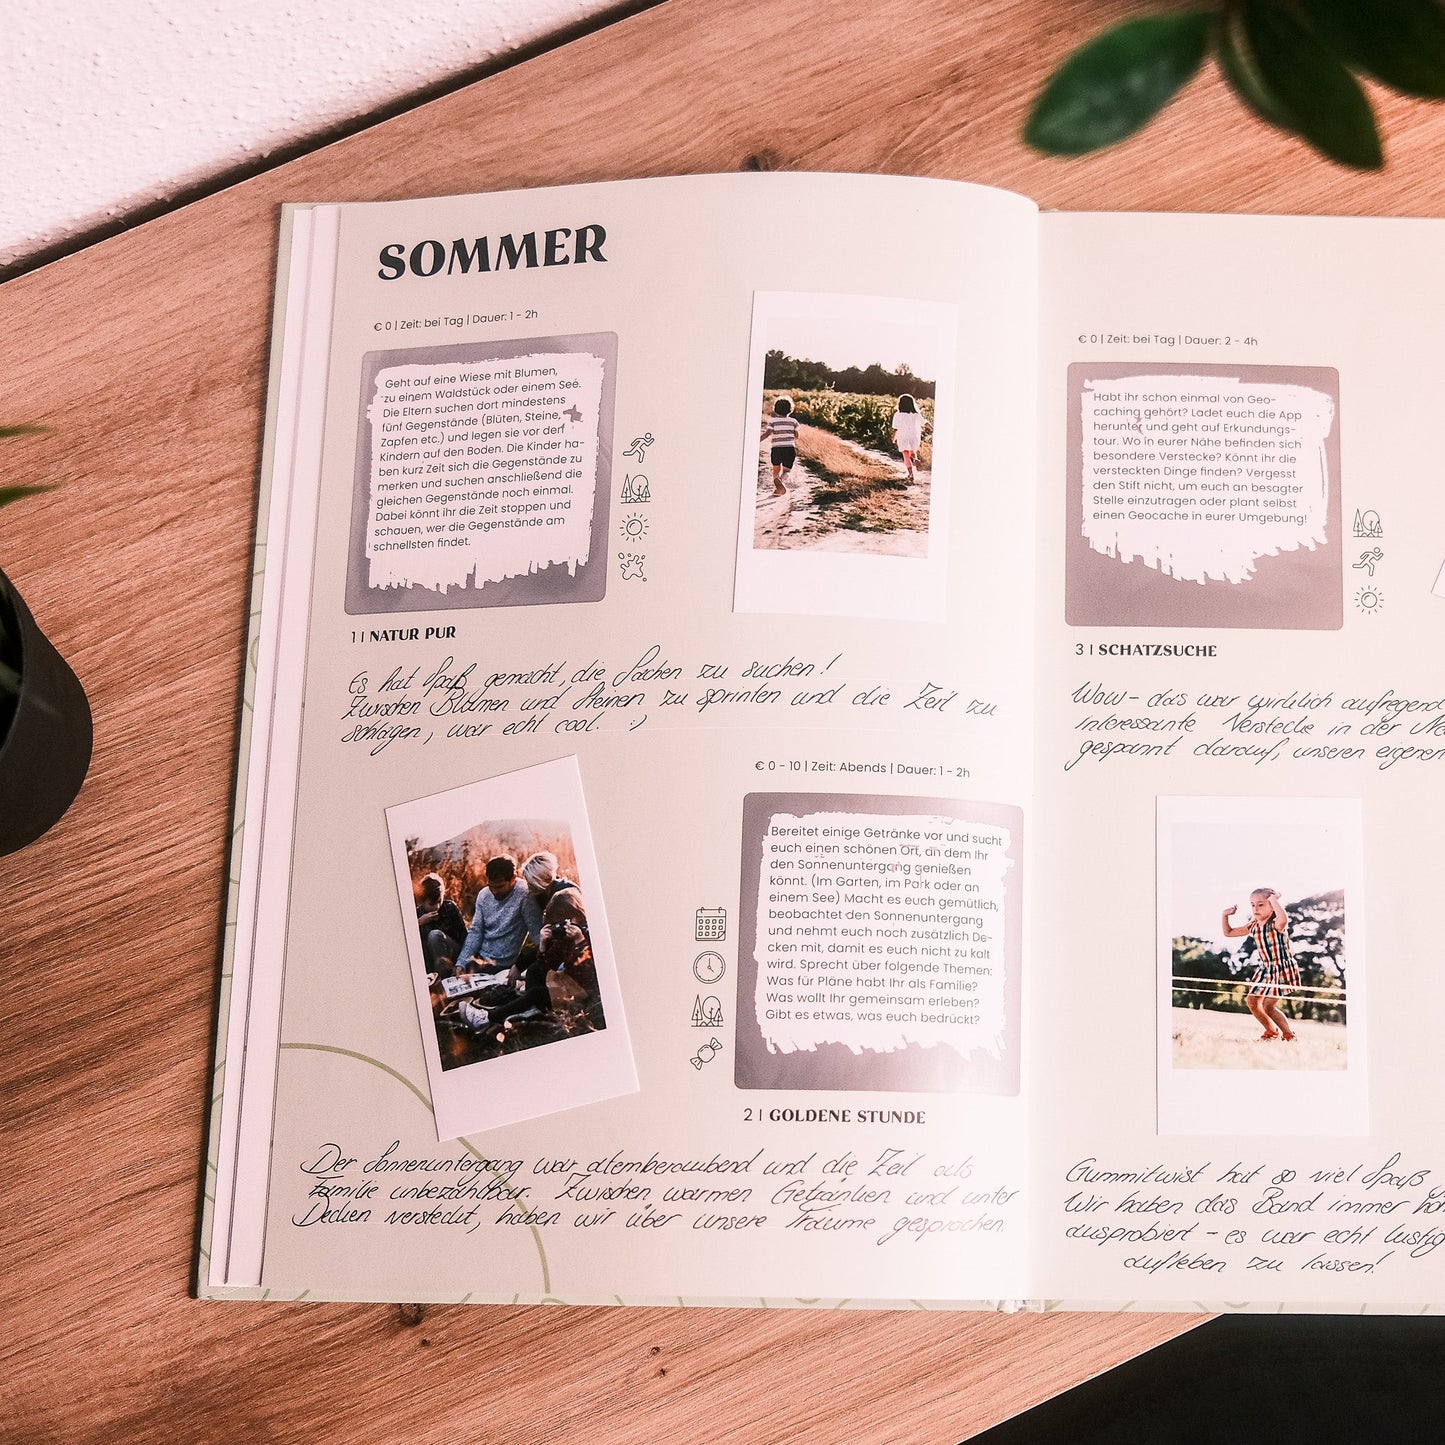 SOMMER
€ 0 | Zeit: bei Tag | Dauer: 1 - 2h
Geht auf eine Wiese mit Blumen,
zu einem Waldstück oder einem See.
Die Eltern suchen dort mindestens
fünf Gegenstände (Blüten, Steine,
Zapfen etc.) und legen sie vor den
Kindern auf den Boden. Die Kinder ha-
ben kurz Zeit sich die Gegenstände zu
merken und suchen anschließend die
gleichen Gegenstände noch einmal.
Dabei könnt ihr die Zeit stoppen und
schauen, wer die Gegenstände am
schnellsten findet.
1 | NATUR PUR
Es hat Spaß gemacht, die Sachen zu suchen!
Zwischen Blumen und Steinen zu sprinten und die Zeit zu
schlagen, war echt cool. :)
€ 0 - 10 | Zeit: Abends | Dauer: 1 - 2h
Bereitet einige Getränke vor und sucht
euch einen schönen Ort, an dem Ihr
den Sonnenuntergang genießen
könnt. (Im Garten, im Park oder an
einem See) Macht es euch gemütlich,
beobachtet den Sonnenuntergang
und nehmt euch noch zusätzlich De-
cken mit, damit es euch nicht zu kalt
wird. Sprecht über folgende Themen:
Was für Pläne habt Ihr als Familie?
Was wollt Ihr gemeinsam erleben?
Gibt es etwas, was euch bedrückt?
2 | GOLDENE STUNDE
Der Sonnenuntergang war atemberaubend und die Zeit als
Familie unbezahlbar. Zwischen warmen Getränken und unter
Decken versteckt, haben wir über unsere Träume gesprochen.
€ 0 | Zeit: bei Tag | Dauer: 2 - 4h
Habt ihr schon einmal von Geo-
caching gehört? Ladet euch die App
herunter und geht auf Erkundungs-
tour. Wo in eurer Nähe befinden sich
besondere Verstecke? Könnt ihr die
versteckten Dinge finden? Vergesst
den Stift nicht, um euch an besagter
Stelle einzutragen oder plant selbst
einen Geocache in eurer Umgebung!
3 | SCHATZSUCHE
Wow - das war wirklich aufregend
interessante Verstecke in der
gespannt darauf, unseren eigenen
Gummitwist hat so viel Spaß
Wir haben das Band immer
ausprobiert - es war echt lustig
aufleben zu lassen!